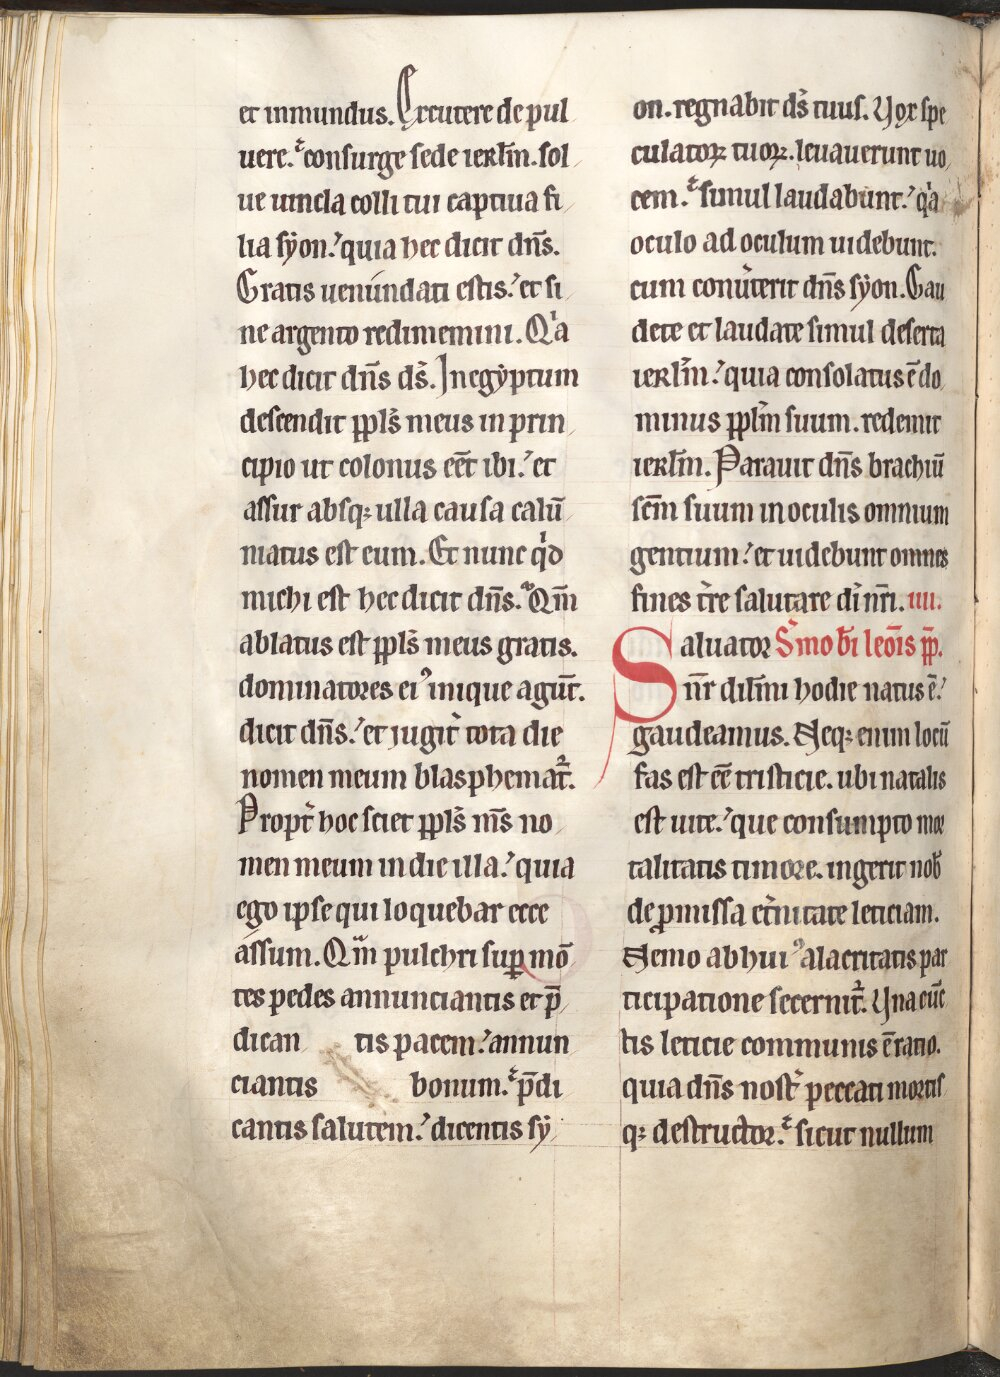 et inmundus. Excutere de pul
uere. ⁊ consurge sede ierl̄m. sol
ue uincla colli tui captiua fi
lia sẏon. quia hec dicit dn̄s.
Gratis uenúndati estis. et si
ne argento redimemini. Qͥa
hec dicit dn̄s ds̄. In egẏptum
descendit ppl̄s meus in prin
cipio ut colonus eēt ibi. et
assur absq; ulla causa calū
niatus est eum. Et nunc qͥd
michi est hec dicit dn̄s. Qm̄
ablatus est ppl̄s meus gratis.
dominatores eiꝰ inique agūt.
dicit dn̄s. et iugit̾ tota die
nomen meum blasphemat᷑.
Propt̾ hoc sciet ppl̄s ms̄ no
men meum in die illa. quia
ego ipse qui loquebar ecce
assum. Qm̄ pulchri suꝑ mō
tes pedes annunciantis et p̄
dicantis pacem. annun
ciantis bonum. ⁊ p̄di
cantis salutem. dicentis sẏ
on. regnabit ds̄ tuus. Uox spe
culatoꝝ tuoꝝ. leuauerunt uo
cem. ⁊ simul laudabunt. qͥa
oculo ad oculum uidebunt.
cum conu̾terit dn̄s sẏon. Gau
dete et laudate simul deserta
ierl̄m. quia consolatus ē do
minus ppl̄m suum. redemit
ierl̄m. Parauit dn̄s brachiū
sc̄m suum in oculis omnium
gentium. et uidebunt omnes
fines t̾re salutare dī nr̄i. iiii.
Saluator S̾mo bī leōis pp̄.
nr̄ dil̄mi hodie natus ē.
gaudeamus. Neq; enim locū
fas est eē tristicie. ubi natalis
est uite. que consumpto mor
talitatis timore. ingerit nob̄
de ꝓmissa et̾nitate leticiam.
Nemo ab huiꝰ alacritatis par
ticipatione secernit᷑. Una cūc
tis leticie communis ē ratio.
quia dn̄s nost̾ peccati mortis
q; destructor. ⁊ sicut nullum